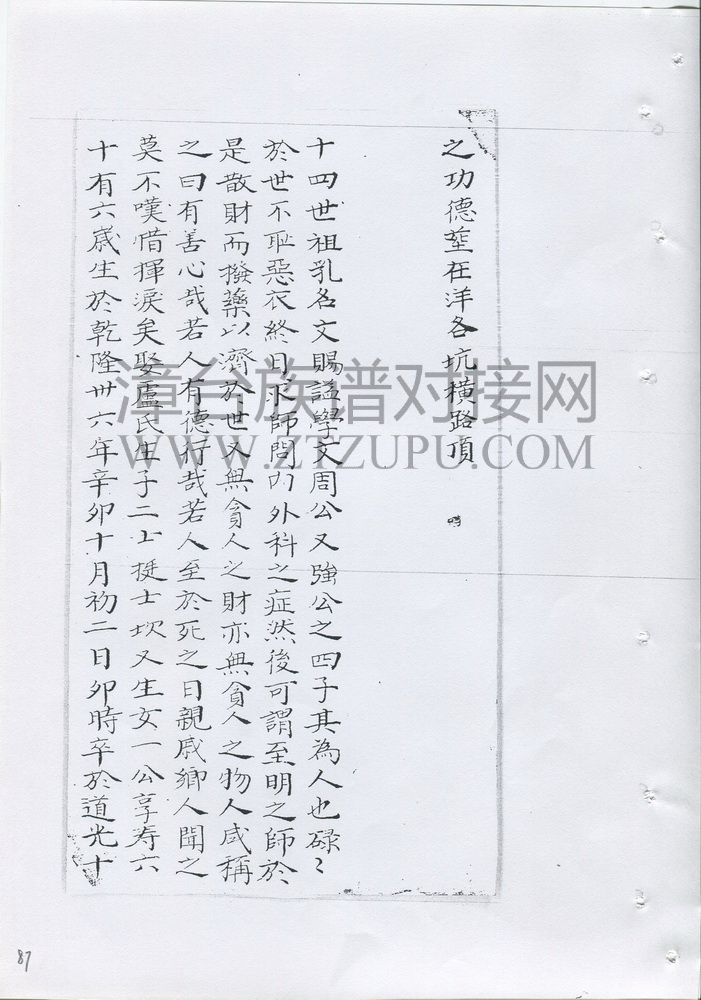 之功德塟在洋各坑橫路頂
時
十四世祖乳名文賜謚學文周公又強公之四子其為人也碌〻
於世不耻惡衣終日求師問內外科之症然後可謂至明之師於
是散財而撥藥以濟於世又無貪人之財亦無貪人之物人咸稱
之曰有善心哉若人有德行哉若人至於死之日親戚鄉人聞之
莫不嘆惜揮淚矣娶盧氏生子二士挺士坎又生女一公享寿六
十有六歲生於乾隆卅六年辛卯十月初二日卯時卒於道光十
漳台族谱对接网
WWW.ZTZUPU.COM
87